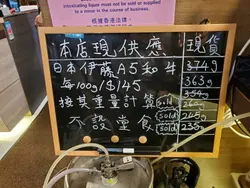 intoxicating liquor must not be sold or supplied
to a minor in the course of business.
根據香港法律,
本店現供應
日本伊藤A5和牛
每100g/$145
按其重量計算
不設堂食
現貨
374g
363g
354g
(sold)
(sold) 245g
(sold) 233g